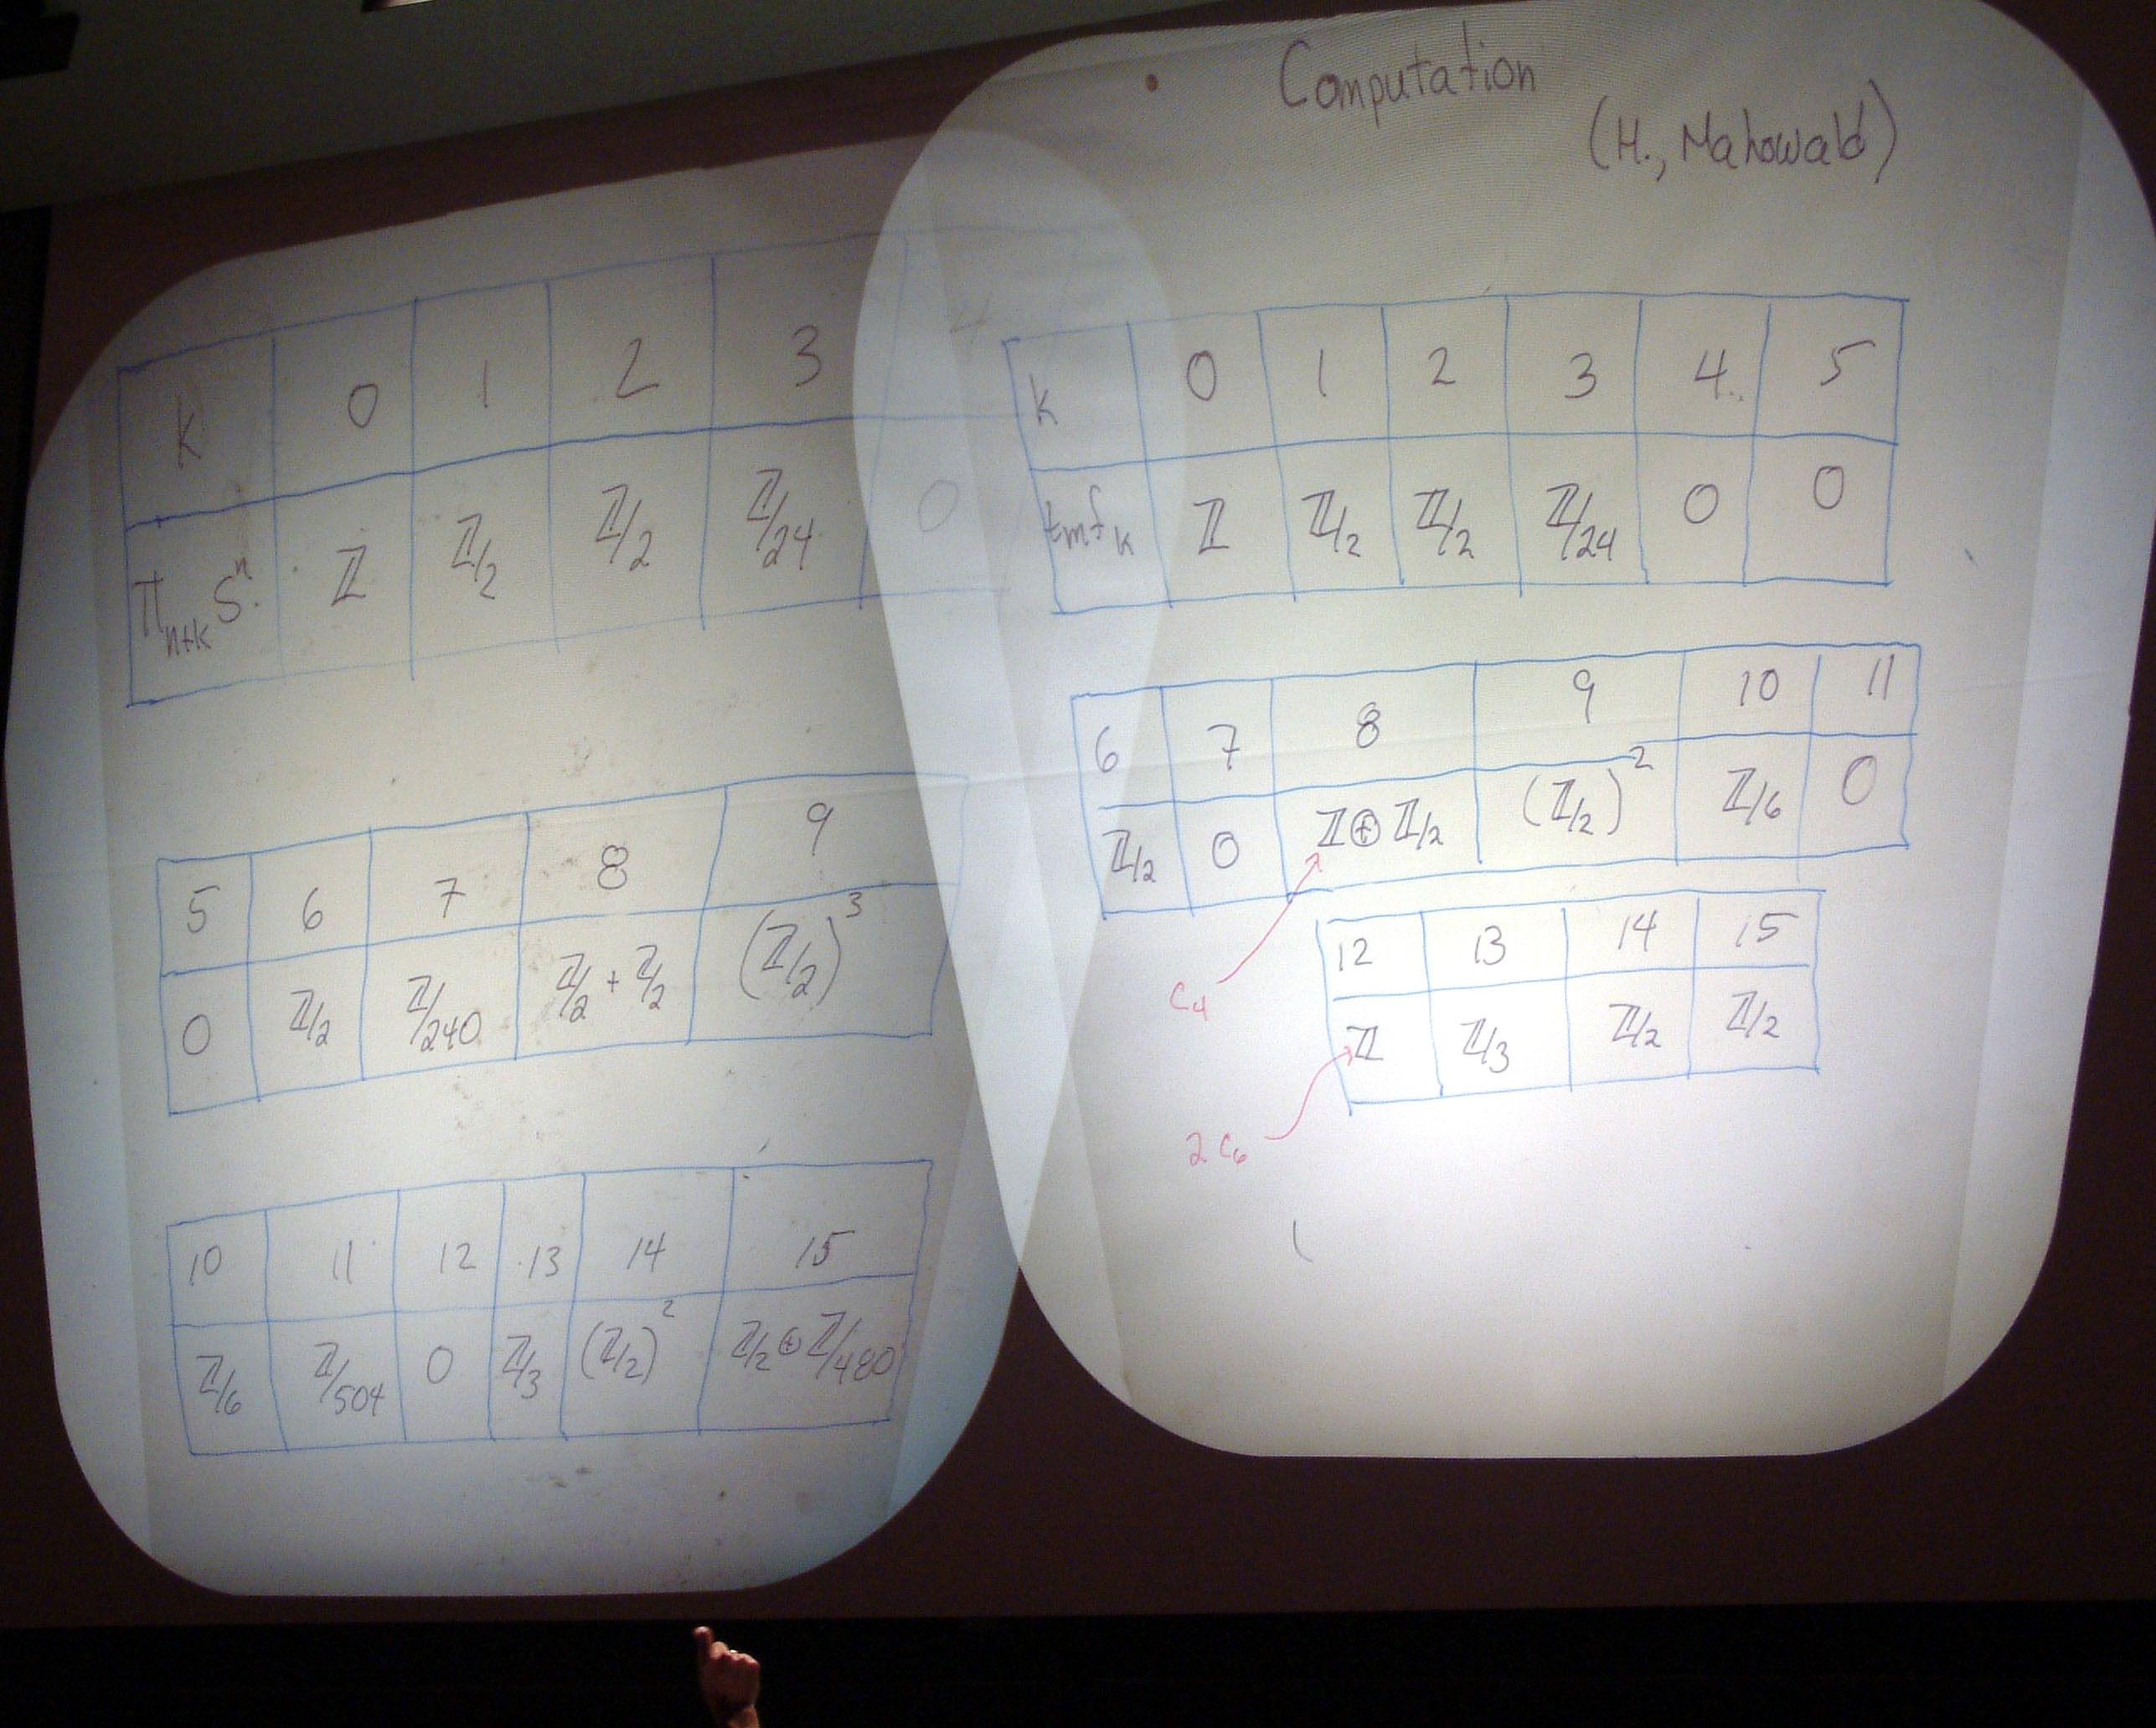 k 0 1 2 3 4
π_{n+k} S^n ℤ ℤ/2 ℤ/2 ℤ/24 0
5 6 7 8 9
0 ℤ/2 ℤ/240 ℤ/2 + ℤ/2 (ℤ/2)^3
10 11 12 13 14 15
ℤ/6 ℤ/504 0 ℤ/3 (ℤ/2)^2 ℤ/2 ⊕ ℤ/480
• Computation
(H., Mahowald)
k 0 1 2 3 4 5
tmf_k ℤ ℤ/2 ℤ/2 ℤ/24 0 0
6 7 8 9 10 11
ℤ/2 0 ℤ ⊕ ℤ/2 (ℤ/2)^2 ℤ/6 0
c_4
12 13 14 15
ℤ ℤ/3 ℤ/2 ℤ/2
2c_6
(